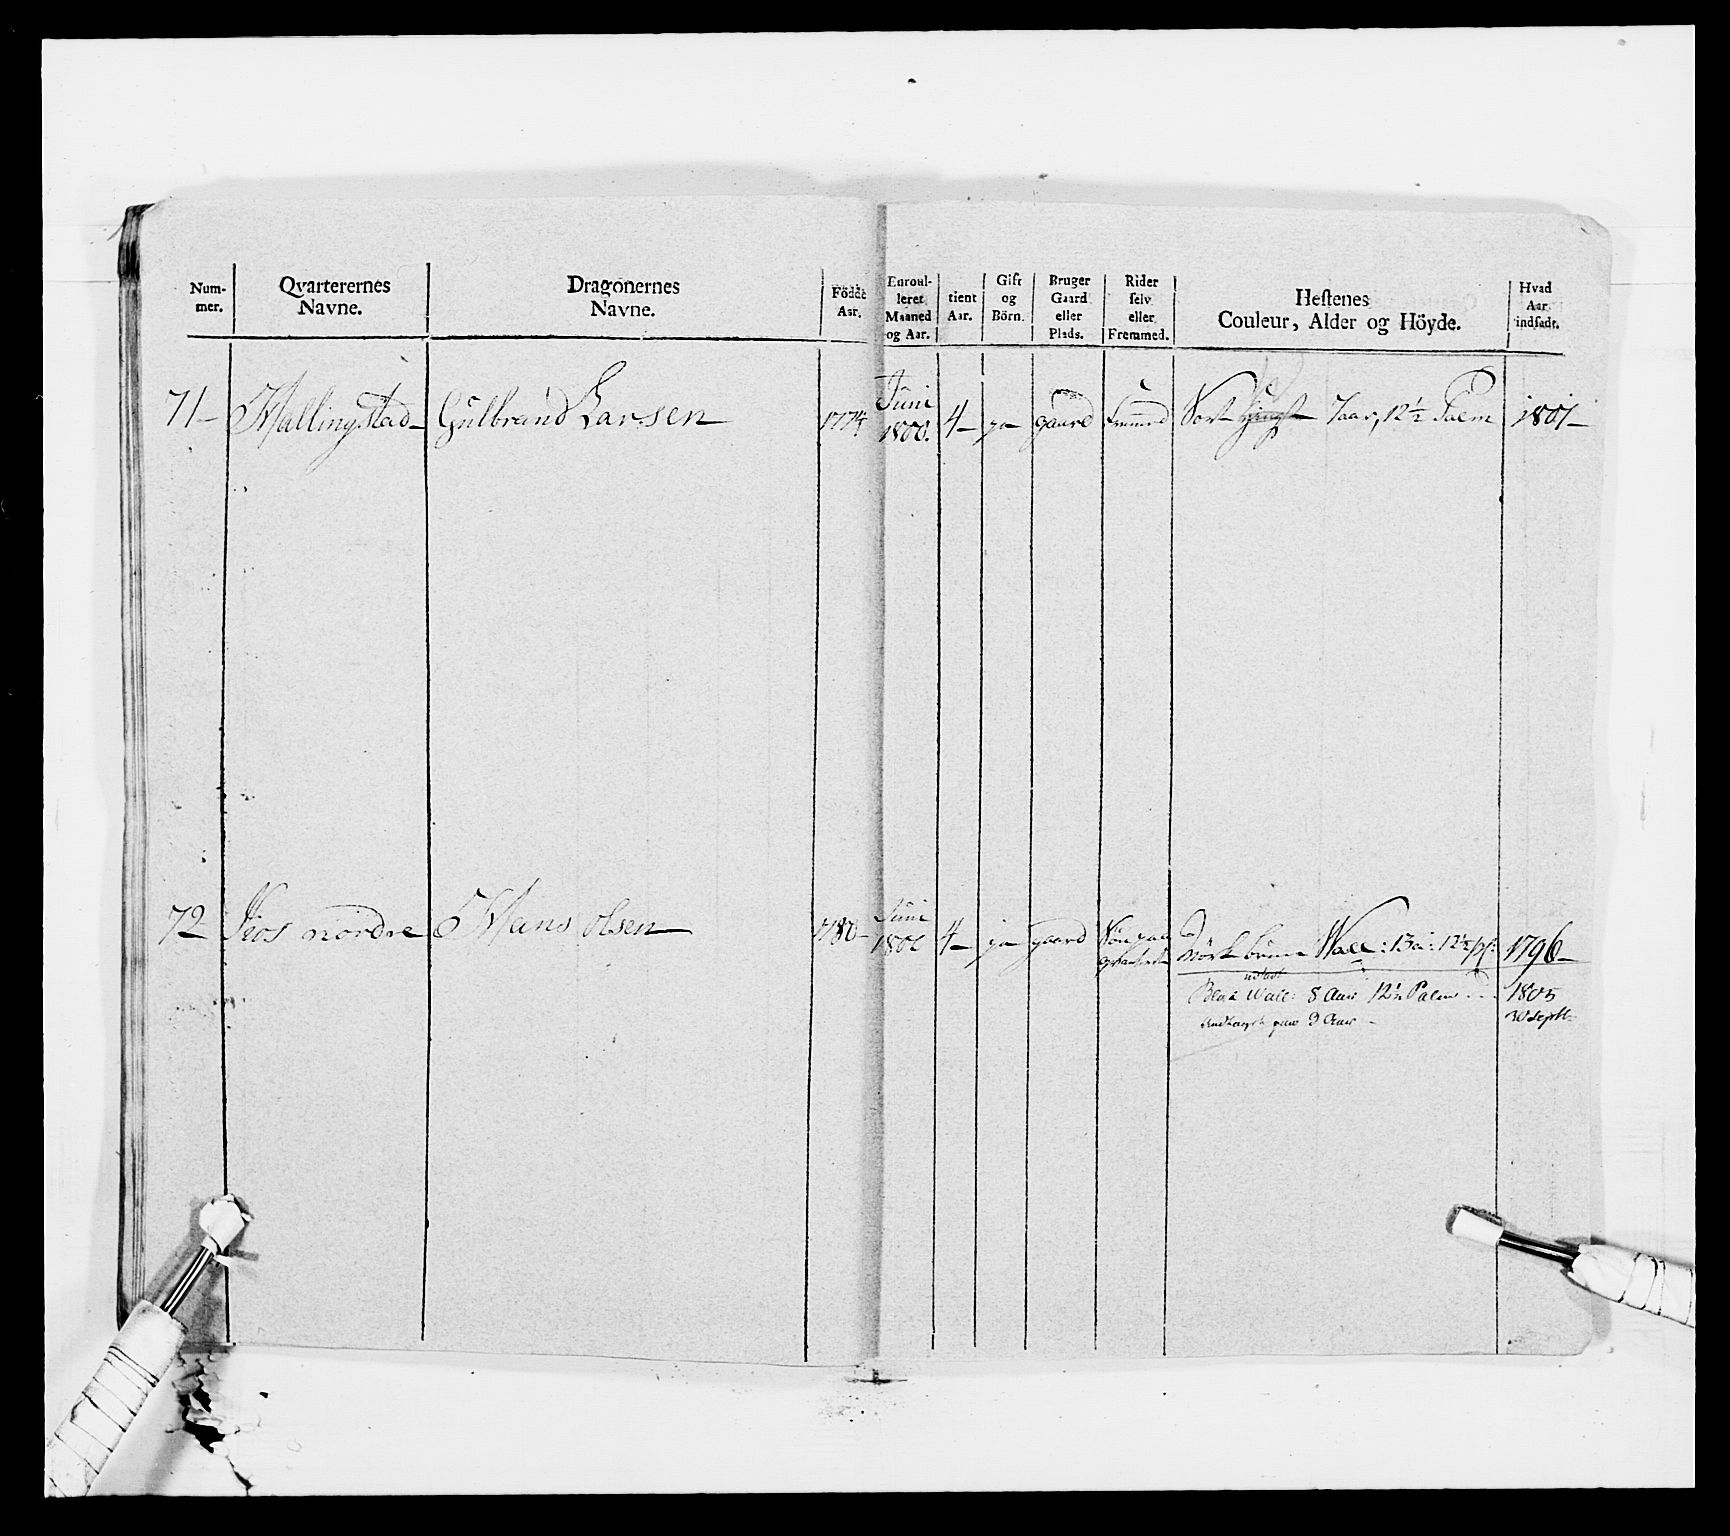 Num-
mer.
Qvarterernes
Navne.
Dragonernes
Navne.
Födde
Aar.
Enroul-
leret
Maaned
og Aar.
tient
Aar.
Gift
og
Börn.
Bruger
Gaard
eller
Plads.
Rider
selv
eller
Fremmed.
Hestenes
Couleur, Alder og Höyde.
Hvad
Aar
indsadt.
71 Hallingstad Gulbrand Larsen 1774 Juni 1800. 4 ja gaard Fremmed Sort 7 aar, 12½ Palm 1801
72 nordre Hans Olsen 1780 Juni 4 ja gaard Mörk bruun Wall: 13 a: 12½ p: 1796
udsat
Wall: 8 Aar 12½ Palm 1805
9 Aar 30 Septb